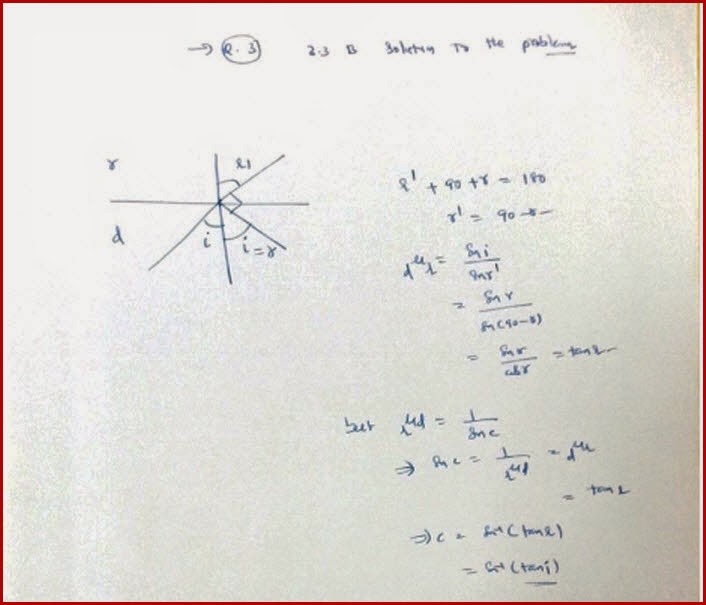 → 2.3 2.3 B Solution to the problem
r r1
d i i=r
r' + 90 + r = 180
r' = 90 - r
dμr = Sin i / Sin r'
= Sin r / Sin (90-r)
= Sin r / cos r = tan r
but rμd = 1 / Sin c
⇒ Sin c = 1 / rμd = dμr
= tan r
⇒ c = Sin⁻¹ (tan r)
= Sin⁻¹ (tan i)